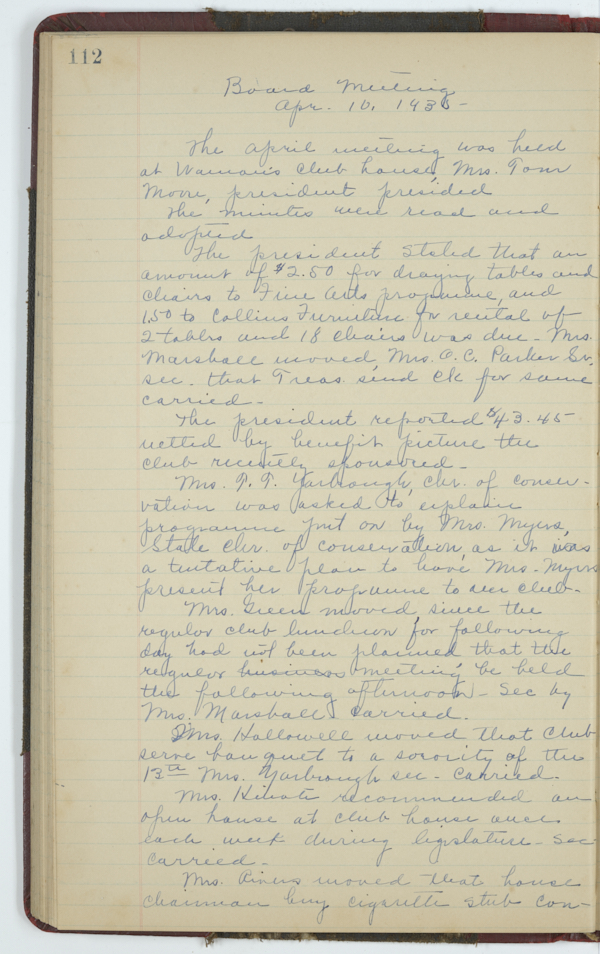 112
Board Meeting
Apr. 10, 1935-
The April meeting was held
at Woman's Club house, Mrs. Tom
Moore, president presided
The minutes were read and
adopted
The president stated that an
amount of $2.50 for draying tables and
chairs to Fine Arts programme, and
1.50 to Collins Furniture for rental of
2 tables and 18 chairs was due - Mrs.
Marshall moved, Mrs. O. C. Parker Sr.
sec. that Treas. send ck for same
carried -
The president reported $43.45
netted by benefit picture the
club recently sponsored -
Mrs. T. T. Yarbrough, chr. of conser-
vation was asked to explain
programme put on by Mrs. Myers,
State chr. of conservation, as it was
a tentative plan to have Mrs. Myers
present her programme to our club -
Mrs. Green moved, since the
regular club luncheon for following
day had not been planned that the
regular business meeting be held
the following afternoon - Sec by
Mrs. Marshall Carried.
Mrs. Hollowell moved that Club
serve banquet to a sorority of the
13th Mrs. Yarbrough sec - Carried.
Mrs. recommended an
open house at club house once
each week during legislature - Sec
Carried -
Mrs. moved that house
chairman buy cigarette stub con-